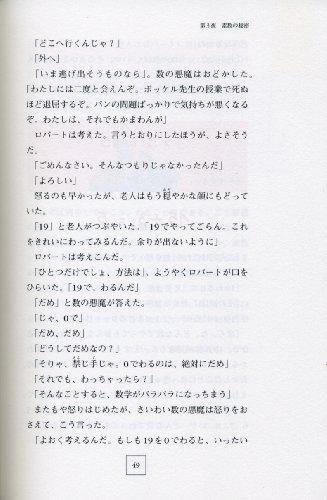 第3夜　素数の秘密
「どこへ行くんじゃ？」
「外へ」
「いま逃げ出そうものなら」。数の悪魔はおどかした。
「わたしには二度と会えんぞ。ボッケル先生の授業で死ぬ
ほど退屈するぞ。パンの問題ばっかりで気持ちが悪くなる
ぞ。わたしは、それでもかまわんが」
ロバートは考えた。言うとおりにしたほうが、よさそう
だ。
「ごめんなさい。そんなつもりじゃなかったんだ」
「よろしい」
怒るのも早かったが、老人はもう穏やかな顔にもどって
いた。
「19」と老人がつぶやいた。「19でやってごらん。これ
をきれいにわってみるんだ。余りが出ないように」
ロバートは考えこんだ。
「ひとつだけでしょ、方法は」、ようやくロバートが口を
ひらいた。「19で、わるんだ」
「だめ」と数の悪魔が答えた。
「じゃ、0で」
「だめ、だめ」
「どうしてだめなの？」
「そりゃ、禁じ手じゃ。0でわるのは、絶対にだめ」
「それでも、わっちゃったら？」
「そんなことすると、数学がバラバラになっちまう」
またもや怒りはじめたが、さいわい数の悪魔は怒りをお
さえて、こう言った。
「よおく考えるんだ。もしも19を0でわると、いったい
49